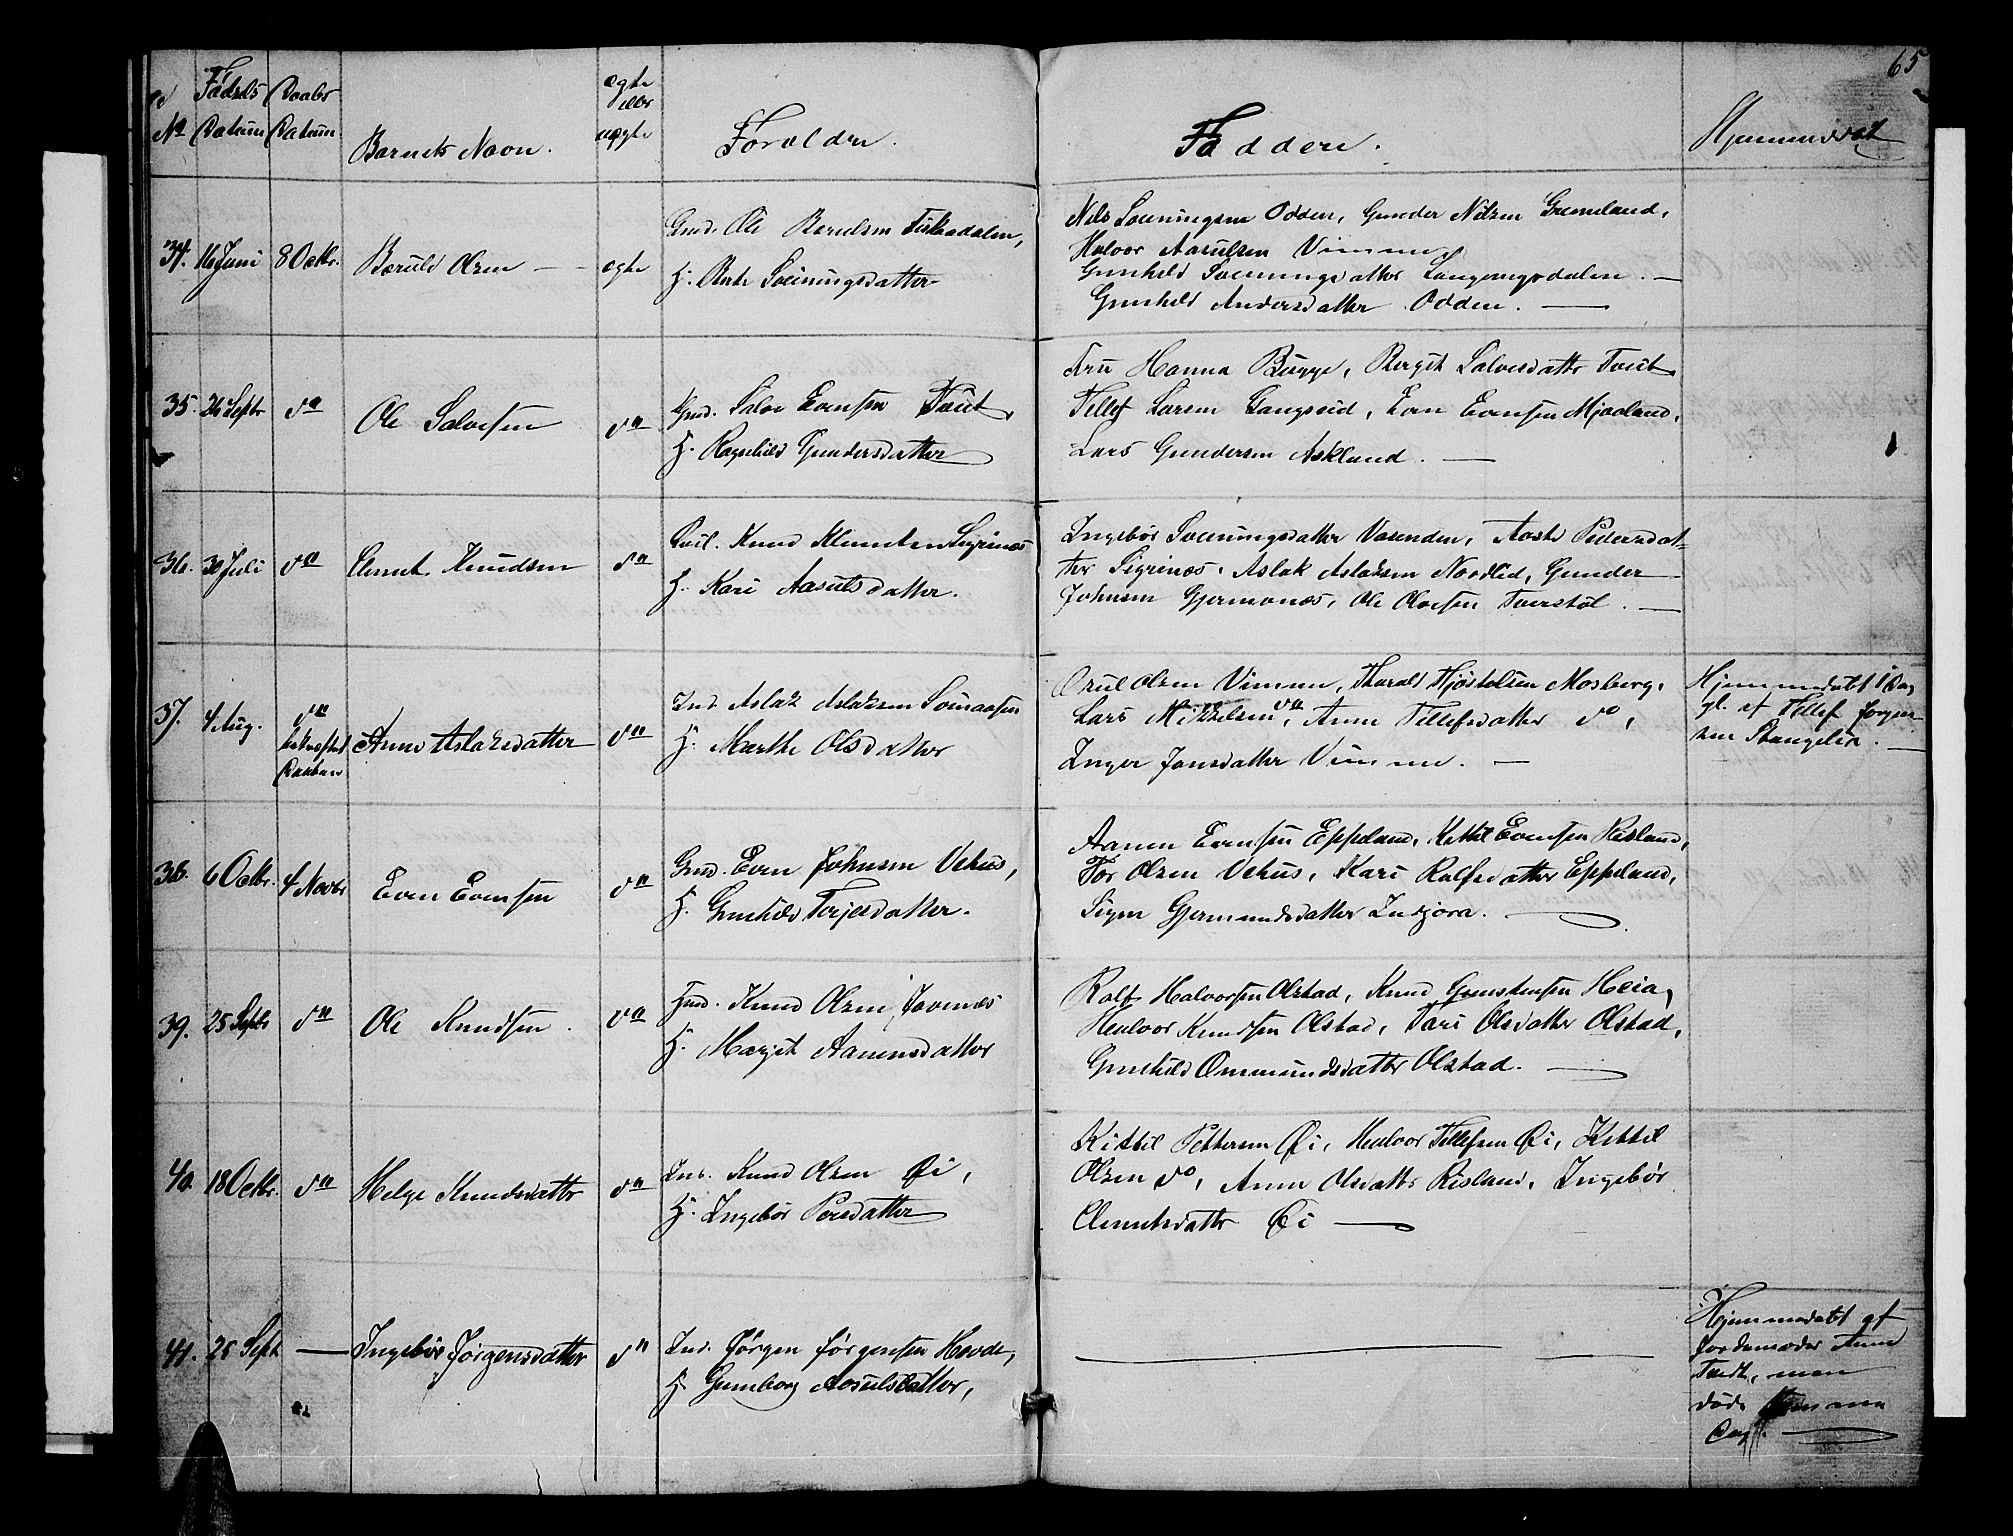 65
Fødsels Daabs ægte
eller
No Datum Datum. Barnets Navn. uægte Forældre. Faddere. Hjemmedøbt
34. 16 Juni 8 Octbr. Beruld Olsen — ægte
Gmd. Ole Berulsen
H. Berte Sveinungsdatter
Nils Sveinungsen Odden, Gunder Nilsen Grimeland,
Halvor Aasulsen Vimme
Gunhild Sveinungsdatter Langevegsdalen. —
Gunhild Andersdatter Odden. —
35. 26 Septbr do Ole Salvesen do
Gmd. Salve Evensen Tveit,
H. Ragnhild Gundersdatter
Fru Hanna Bugge, Bergit Salvesdattr Tveit
Tellef Larsen Langseid, Even Evensen Mjaaland,
Lars Gundersen Askland. —
36. 30 Juli do Clemet Knudsen do
Knud Klemetsen Sigrinæs
H. Kari Aasulsdatter.
Ingebør Sveinungsdatter Vasenden, Aaste Pedersdat-
ter Sigrinæs, Aslak Aslaksen Nordlid, Gunder
Johnsen Gjermonæs, Ole Olvesen Tverstøl. —
37. 4 Aug. do
Daaben Anne Aslaksdatter do
Ind. Aslak Aslaksen
H. Marthe Olsdatter
Orul Olsen Vimme, Tharald Fjøstolsen Mosberg,
Lars Mikkelsen do, Anne Tellefsdatter do,
Inger Jansdatter Vimme. —
Hjemmedøbt 1 Dag
gl. af Tellef Jørgen-
sen Stangelia. —
38. 6 Octbr. 4 Novbr Even Evensen do
Gmd. Even Johnsen Vehus,
H. Gunhild Terjesdatter.
Aanen Evensen Eppeland, Kittil Evensen Risland,
Tor Olsen Vehus, Kari Rolfsdatter Eppeland,
Signe Gjermundsdatter
39. 25 Septbr do Ole Knudsen. do
Knud Olsen
H. Margit Aanensdatter
Rolf Halvorsen Olstad, Knud Gunstensen Heia,
Halvor Knudsen Olstad, Tari Olsdatter Olstad,
Gunhild Ommundsdatter Olstad. —
40. 18 Octbr. do Helge Knudsdattr do
Ind. Knud Olsen Øi,
H. Ingebør Persdatter
Kittil Pettersen Øi, Halvor Tellefsen Øi, Kittil
Olsen do, Anne Olsdattr Risland, Ingebør
Clemetsdattr Øi —
41. 25 Sept — Ingebør Jørgensdatter do
Ind. Jørgen Jørgensen Hovde,
H. Gunborg Aasulsdatter,
Hjemmedøbt af
Jordemoder Anne
Tveit, men
døde samme
Dag. —